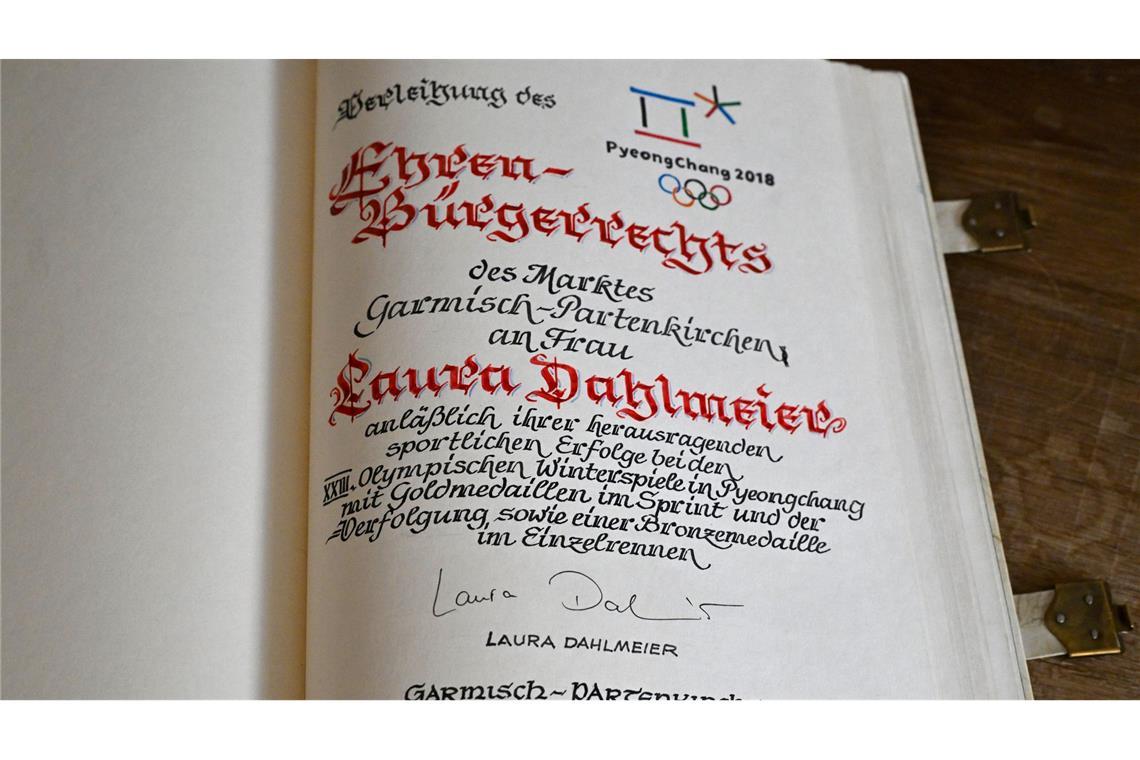 Verleihung des
PyeongChang 2018
Ehren-
Bürgerrechts
des Marktes
Garmisch-Partenkirchen
an Frau
Laura Dahlmeier
anläßlich ihrer herausragenden
sportlichen Erfolge bei den
XXIII. Olympischen Winterspiele in Pyeongchang
mit Goldmedaillen im Sprint und der
Verfolgung, sowie einer Bronzemedaille
im Einzelrennen
Laura Dahlmeier
LAURA DAHLMEIER